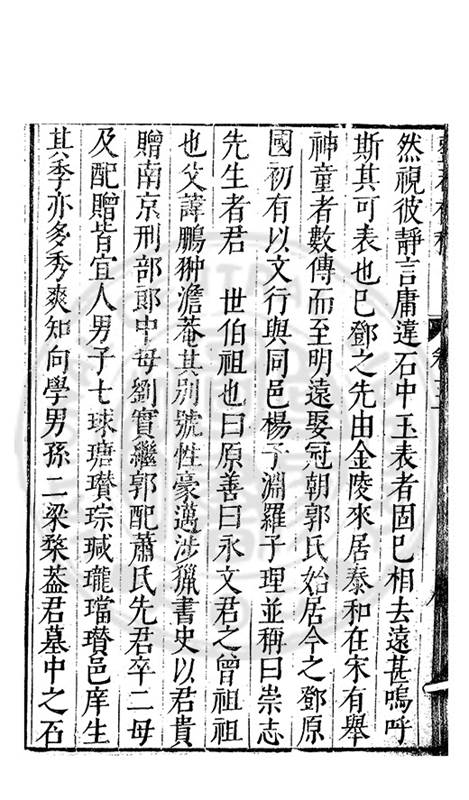 然視彼靜言庸違石中玉表者固已相去遠甚嗚呼
斯其可表也已鄧之先由金陵來居泰和在宋有舉
神童者數傳而至明遠娶冠朝郭氏始居今之鄧原
國初有以文行與同邑楊子淵羅子理並稱曰崇志
先生者君　世伯祖也曰原善曰永文君之曾祖祖
也父諱鵬翀澹菴其別號性豪邁涉獵書史以君貴
贈南京刑部郎中母劉實繼郭配蕭氏先君卒二母
及配贈皆宜人男子七球瑭瓚琮瑊瓏璫瓚邑庠生
其季亦多秀爽知向學男孫二梁棻葢君墓中之石